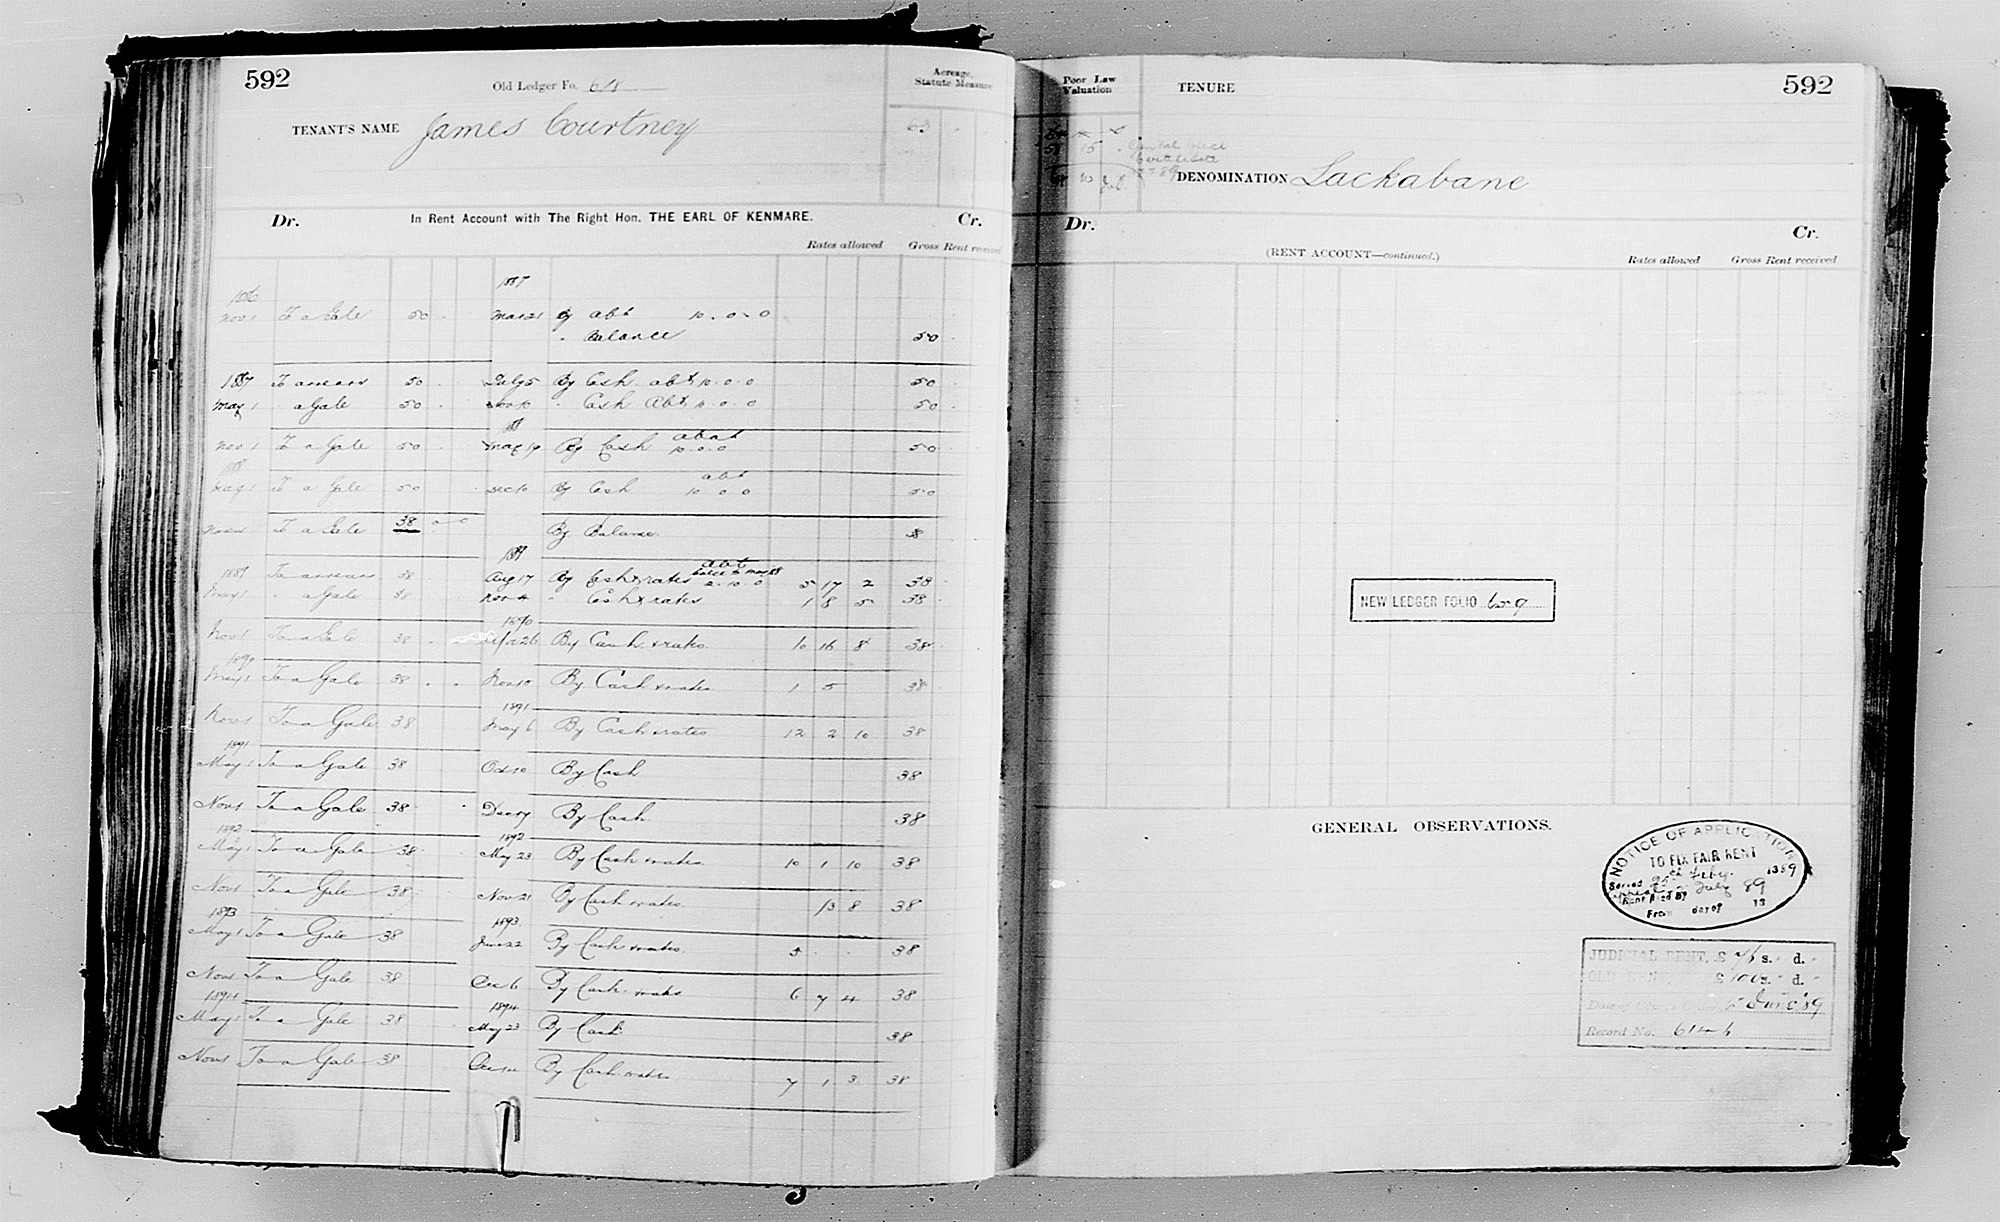 592
Old Ledger Fo. 618
Acreage,
Statute Measure
TENANT'S NAME James Courtney
63
Dr. In Rent Account with The Right Hon. THE EARL OF KENMARE. Cr.
Rates allowed Gross Rent received
1887
1886
Nov 1 To a Gale 50 Mar 21 By abt 10.0.0
" Balance 50
1887 To arrears 50 July 5 By Cash abt 10.0.0 50
May 1 a Gale 50 Nov 10 " Cash abt 10.0.0 50
88
Nov 1 To a Gale 50 May 19 By Cash abat 10.0.0 50
1888
May 1 To a Gale 50 Dec 10 By Cash abt 10.0.0 50
Nov 1 To a Gale 38 0 0 By Balance 38
1889
1889 To arrears 38 Aug 17 By Cash & rates abt 2.10.0 5 17 2 38
May 1 " a Gale 38 Nov 4 " Cash & rates 1 8 5 38
1890
Nov 1 To a Gale 38 Apr 26 By Cash & rates 10 16 8 38
1890
May 1 To a Gale 38 Nov 10 By Cash & rates 1 5 38
1891
Nov 1 To a Gale 38 May 6 By Cash & rates 12 2 10 38
1891
May 1 To a Gale 38 Oct 10 By Cash 38
Nov 1 To a Gale 38 Dec 17 By Cash 38
1892 1892
May 1 To a Gale 38 May 23 By Cash & rates 10 1 10 38
Nov 1 To a Gale 38 Nov 21 By Cash & rates 13 8 38
1893 1893
May 1 To a Gale 38 June 22 By Cash & rates 5 . . 38
Nov 1 To a Gale 38 Dec 6 By Cash & rates 6 7 4 38
1894 1894
May 1 To a Gale 38 May 23 By Cash 38
Nov 1 To a Gale 38 Dec By Cash & rates 7 1 3 38
Poor Law
Valuation
TENURE
592
15
10
DENOMINATION Lackabane
Dr. Cr.
(RENT ACCOUNT—continued.)
Rates allowed Gross Rent received
NEW LEDGER FOLIO
GENERAL OBSERVATIONS.
NOTICE OF APPLICATION
TO FIX FAIR RENT
Served Feby. 1889
July 89
Rent fixed by
From day of 18
JUDICIAL RENT, £ s. d.
OLD RENT, £ 100 s. d.
Date of June '89
Record No.